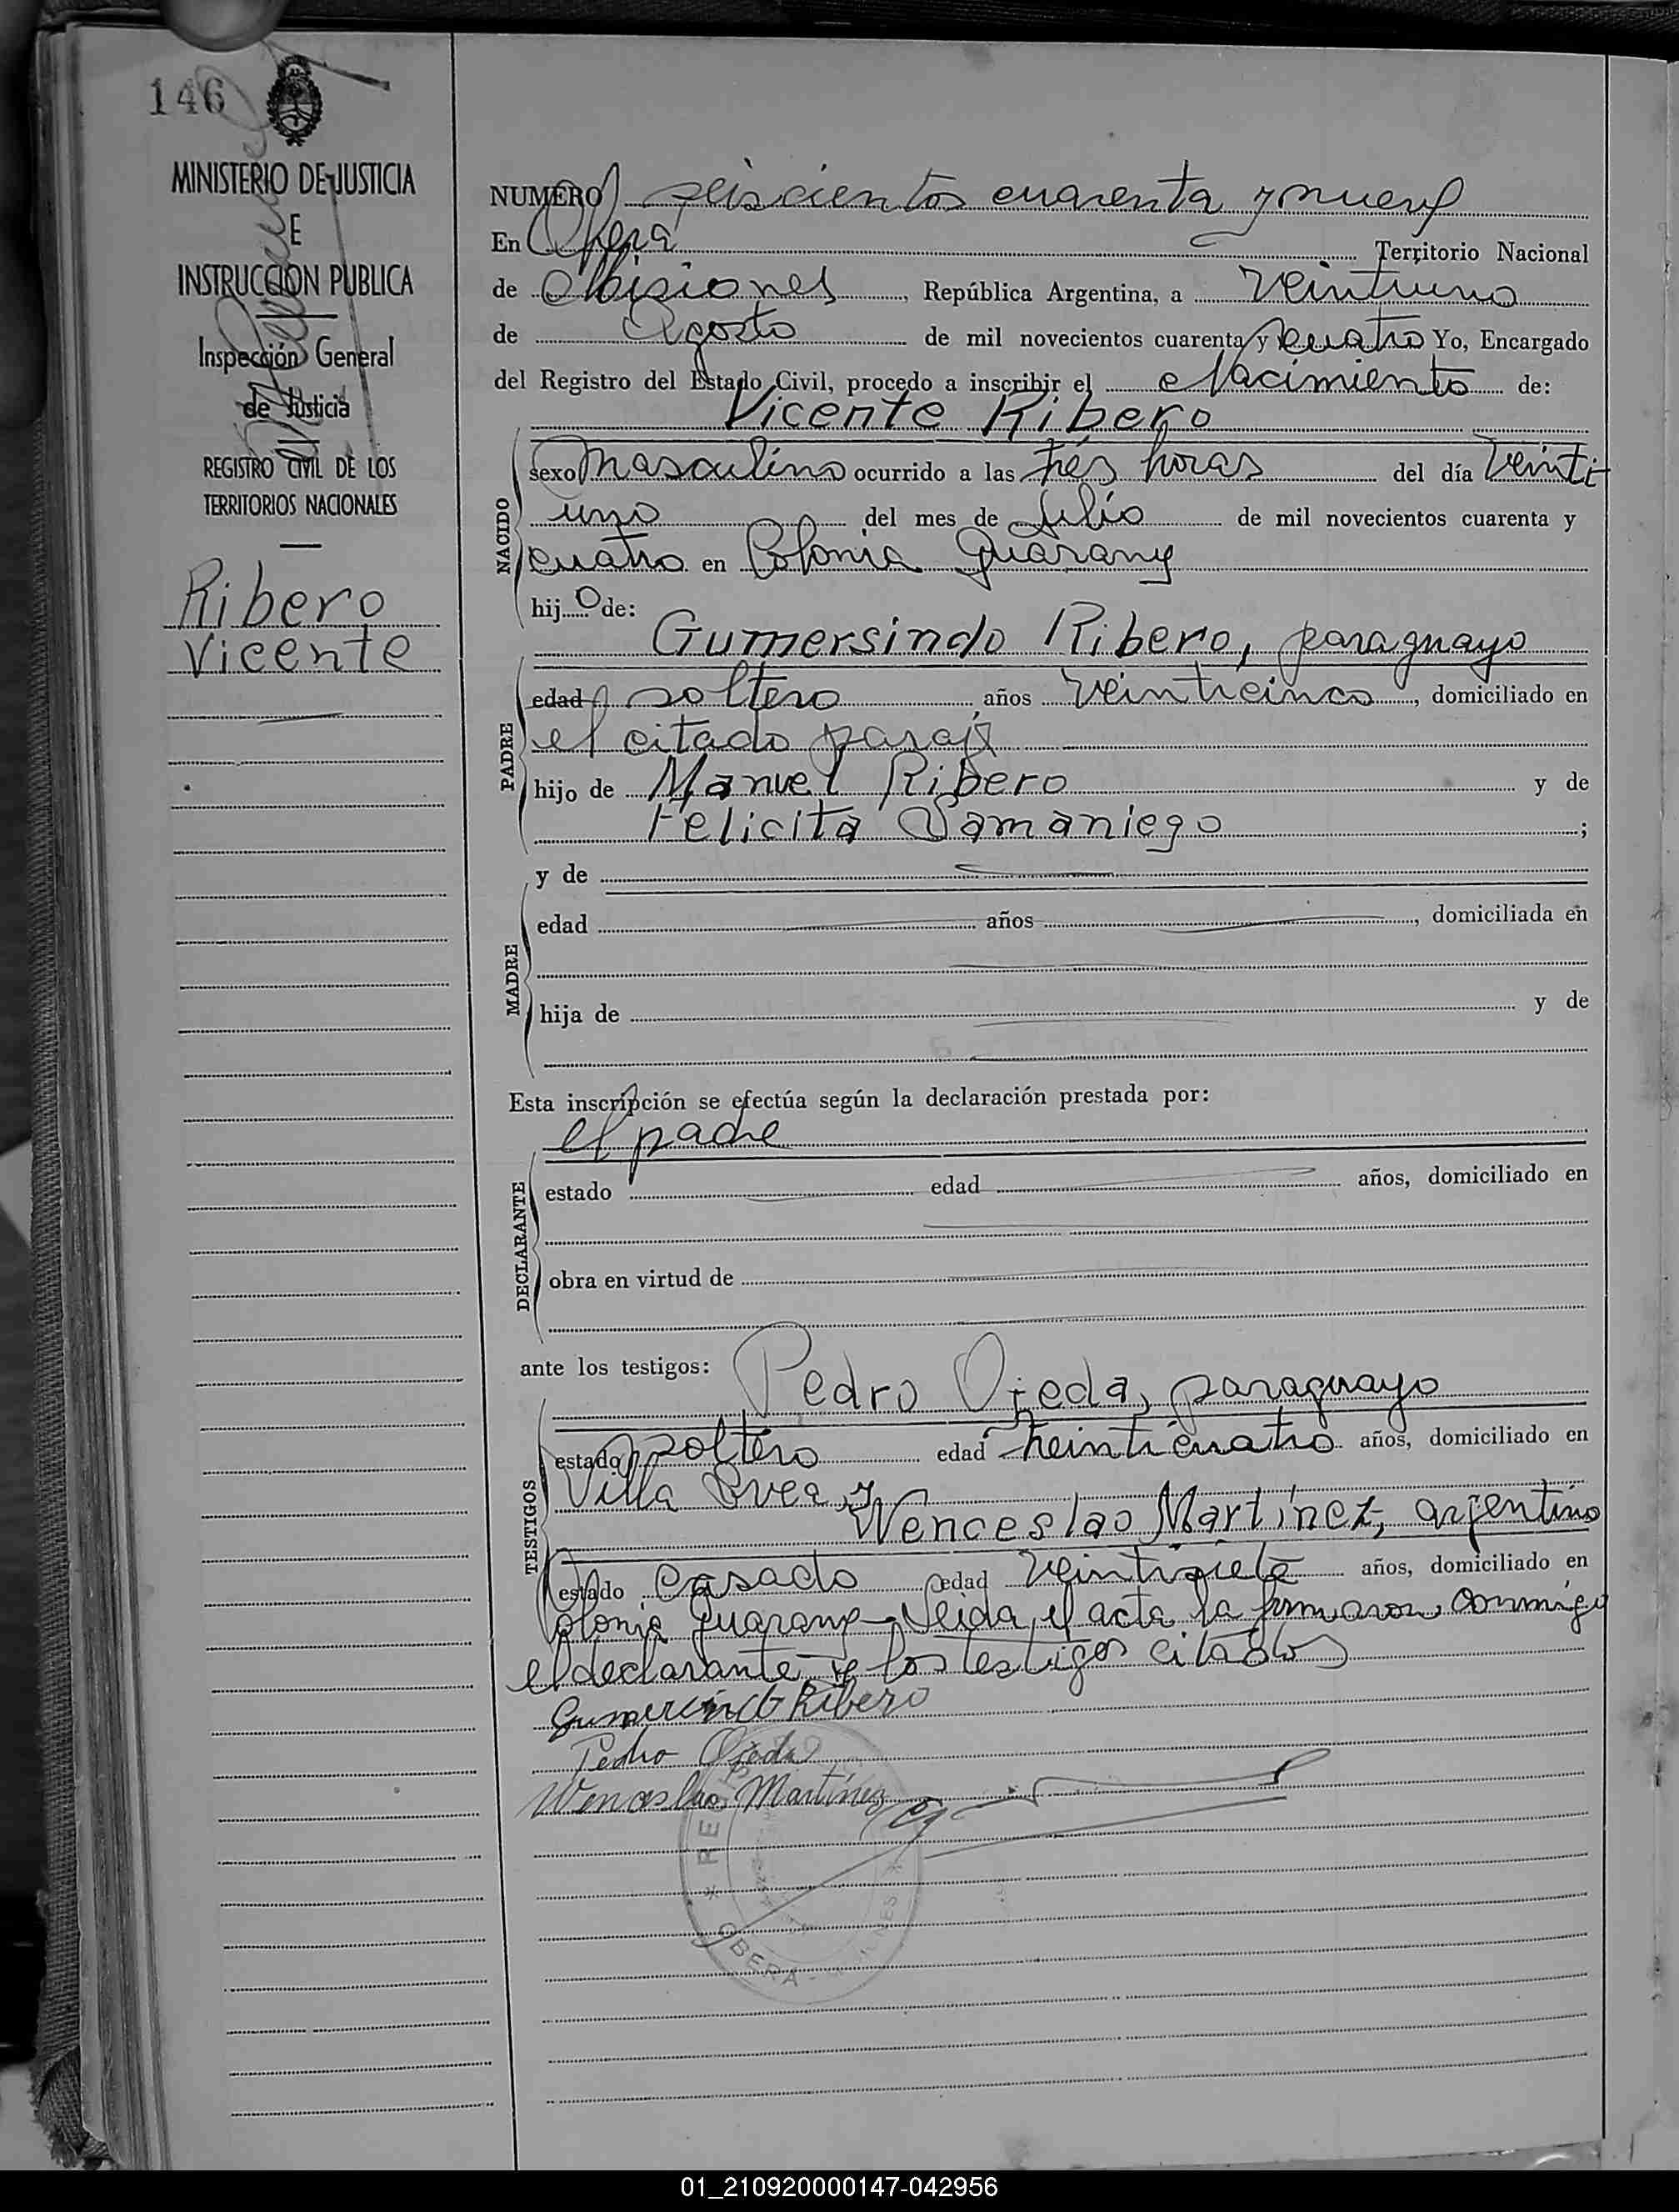 146
MINISTERIO DE JUSTICIA
E
INSTRUCCION PUBLICA
Inspección General
de Justicia
REGISTRO CIVIL DE LOS
TERRITORIOS NACIONALES
Ribero
Vicente
NUMERO seiscientos cuarenta y nueve
En Oberá Territorio Nacional
de Misiones, República Argentina, a veintiuno
de Agosto de mil novecientos cuarenta y cuatro Yo, Encargado
del Registro del Estado Civil, procedo a inscribir el Nacimiento de:
Vicente Ribero
NACIDO
sexo masculino ocurrido a las tres horas del día veinti
uno del mes de Julio de mil novecientos cuarenta y
cuatro en Colonia Guarany
hijo de:
Gumersindo Ribero, paraguayo
PADRE
edad soltero años veinticinco, domiciliado en
el citado paraje
hijo de Manuel Ribero y de
Felicita Samaniego ;
y de
MADRE
edad años , domiciliada en
hija de y de
Esta inscripción se efectúa según la declaración prestada por:
el padre
DECLARANTE
estado edad años, domiciliado en
obra en virtud de
ante los testigos:
Pedro Ojeda, paraguayo
TESTIGOS
estado soltero edad treinticuatro años, domiciliado en
Villa Svea y
Wenceslao Martínez, argentino
estado casado edad veintisiete años, domiciliado en
Colonia Guarany - Leida el acta la firmaron conmigo
el declarante y los testigos citados
Gumercindo Ribero
Pedro Ojeda
Wenceslao Martínez
OBERA - MISIONES
01_210920000147-042956